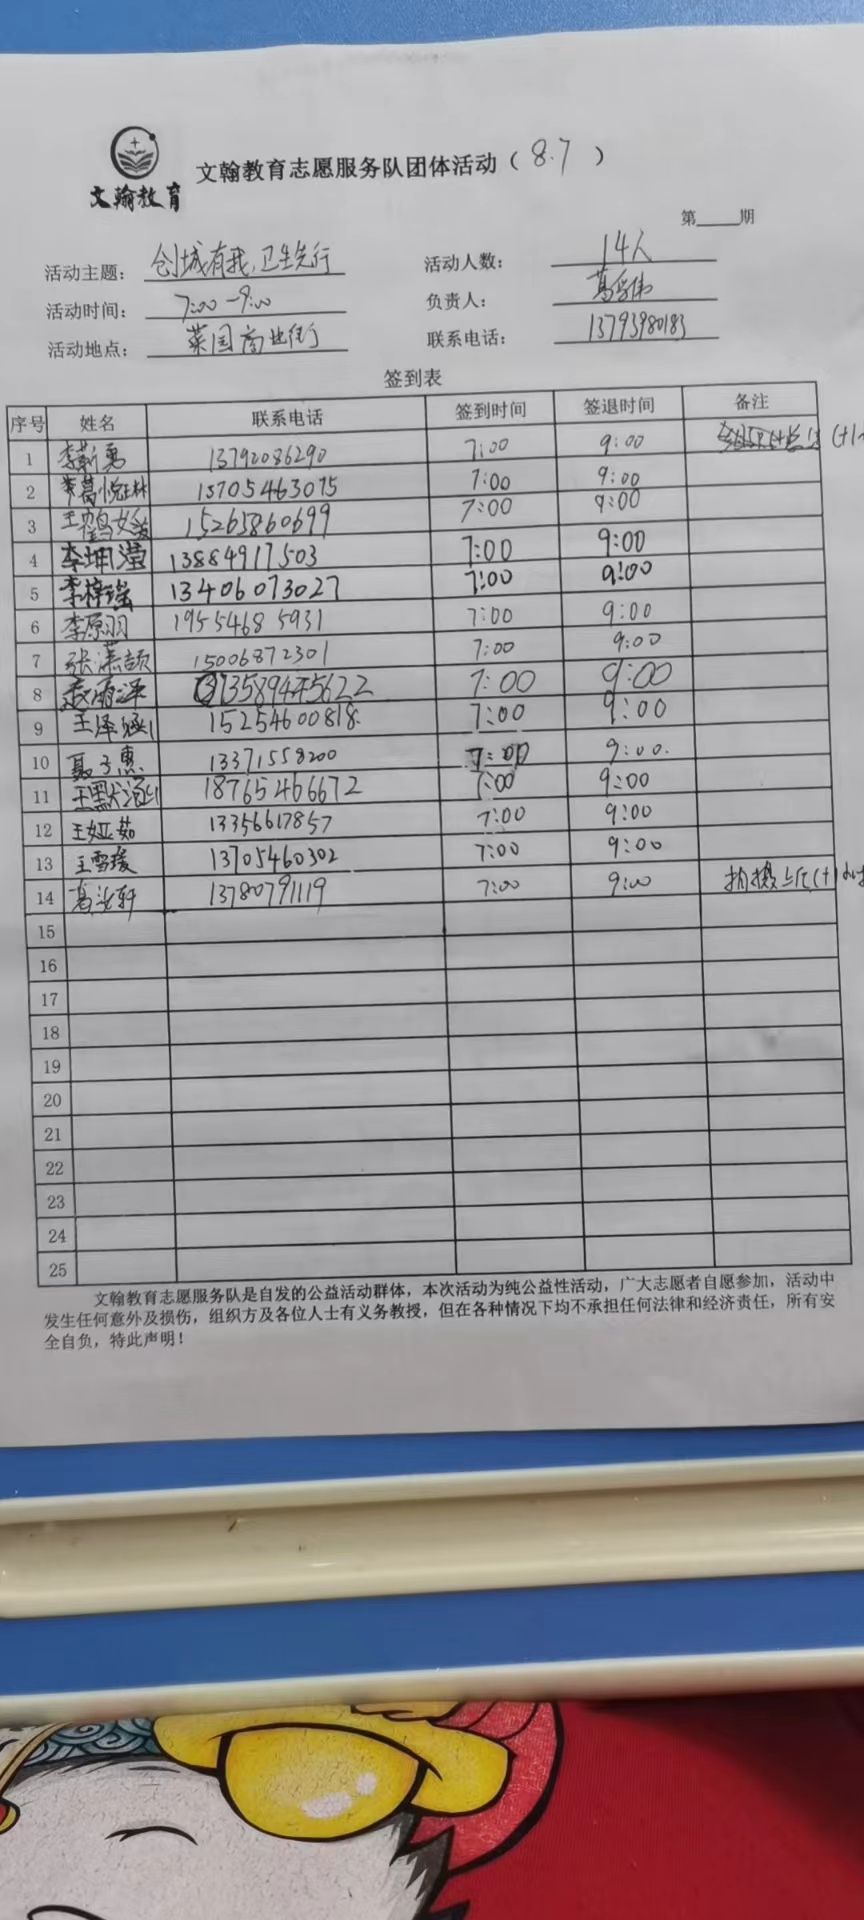 文翰教育
文翰教育志愿服务队团体活动（8.7）
第____期
活动主题：创城有我,卫生先行 活动人数：14人
活动时间：7:00-9:00 负责人：葛
活动地点：菜园商业街 联系电话：13793980183
签到表
序号 姓名 联系电话 签到时间 签退时间 备注
1 李 勇 13792086290 7:00 9:00
2 葛悦 13705463075 7:00 9:00
3 王鹤 15265860699 7:00 9:00
4 李坤滢 13884917503 7:00 9:00
5 李梓瑞 13406073027 7:00 9:00
6 李原羽 19554685931 7:00 9:00
7 张 颉 15006872301 7:00 9:00
8 雨泽 13589445622 7:00 9:00
9 王泽涵 15254600818 7:00 9:00
10 聂子惠 13371558200 7:00 9:00.
11 王默涵 18765466672 7:00 9:00
12 王娅茹 13356617857 7:00 9:00
13 王雪瑗 13705460302 7:00 9:00
14 葛 轩 13780791119 7:00 9:00 拍摄
15
16
17
18
19
20
21
22
23
24
25
文翰教育志愿服务队是自发的公益活动群体，本次活动为纯公益性活动，广大志愿者自愿参加，活动中
发生任何意外及损伤，组织方及各位人士有义务教授，但在各种情况下均不承担任何法律和经济责任，所有安
全自负，特此声明！